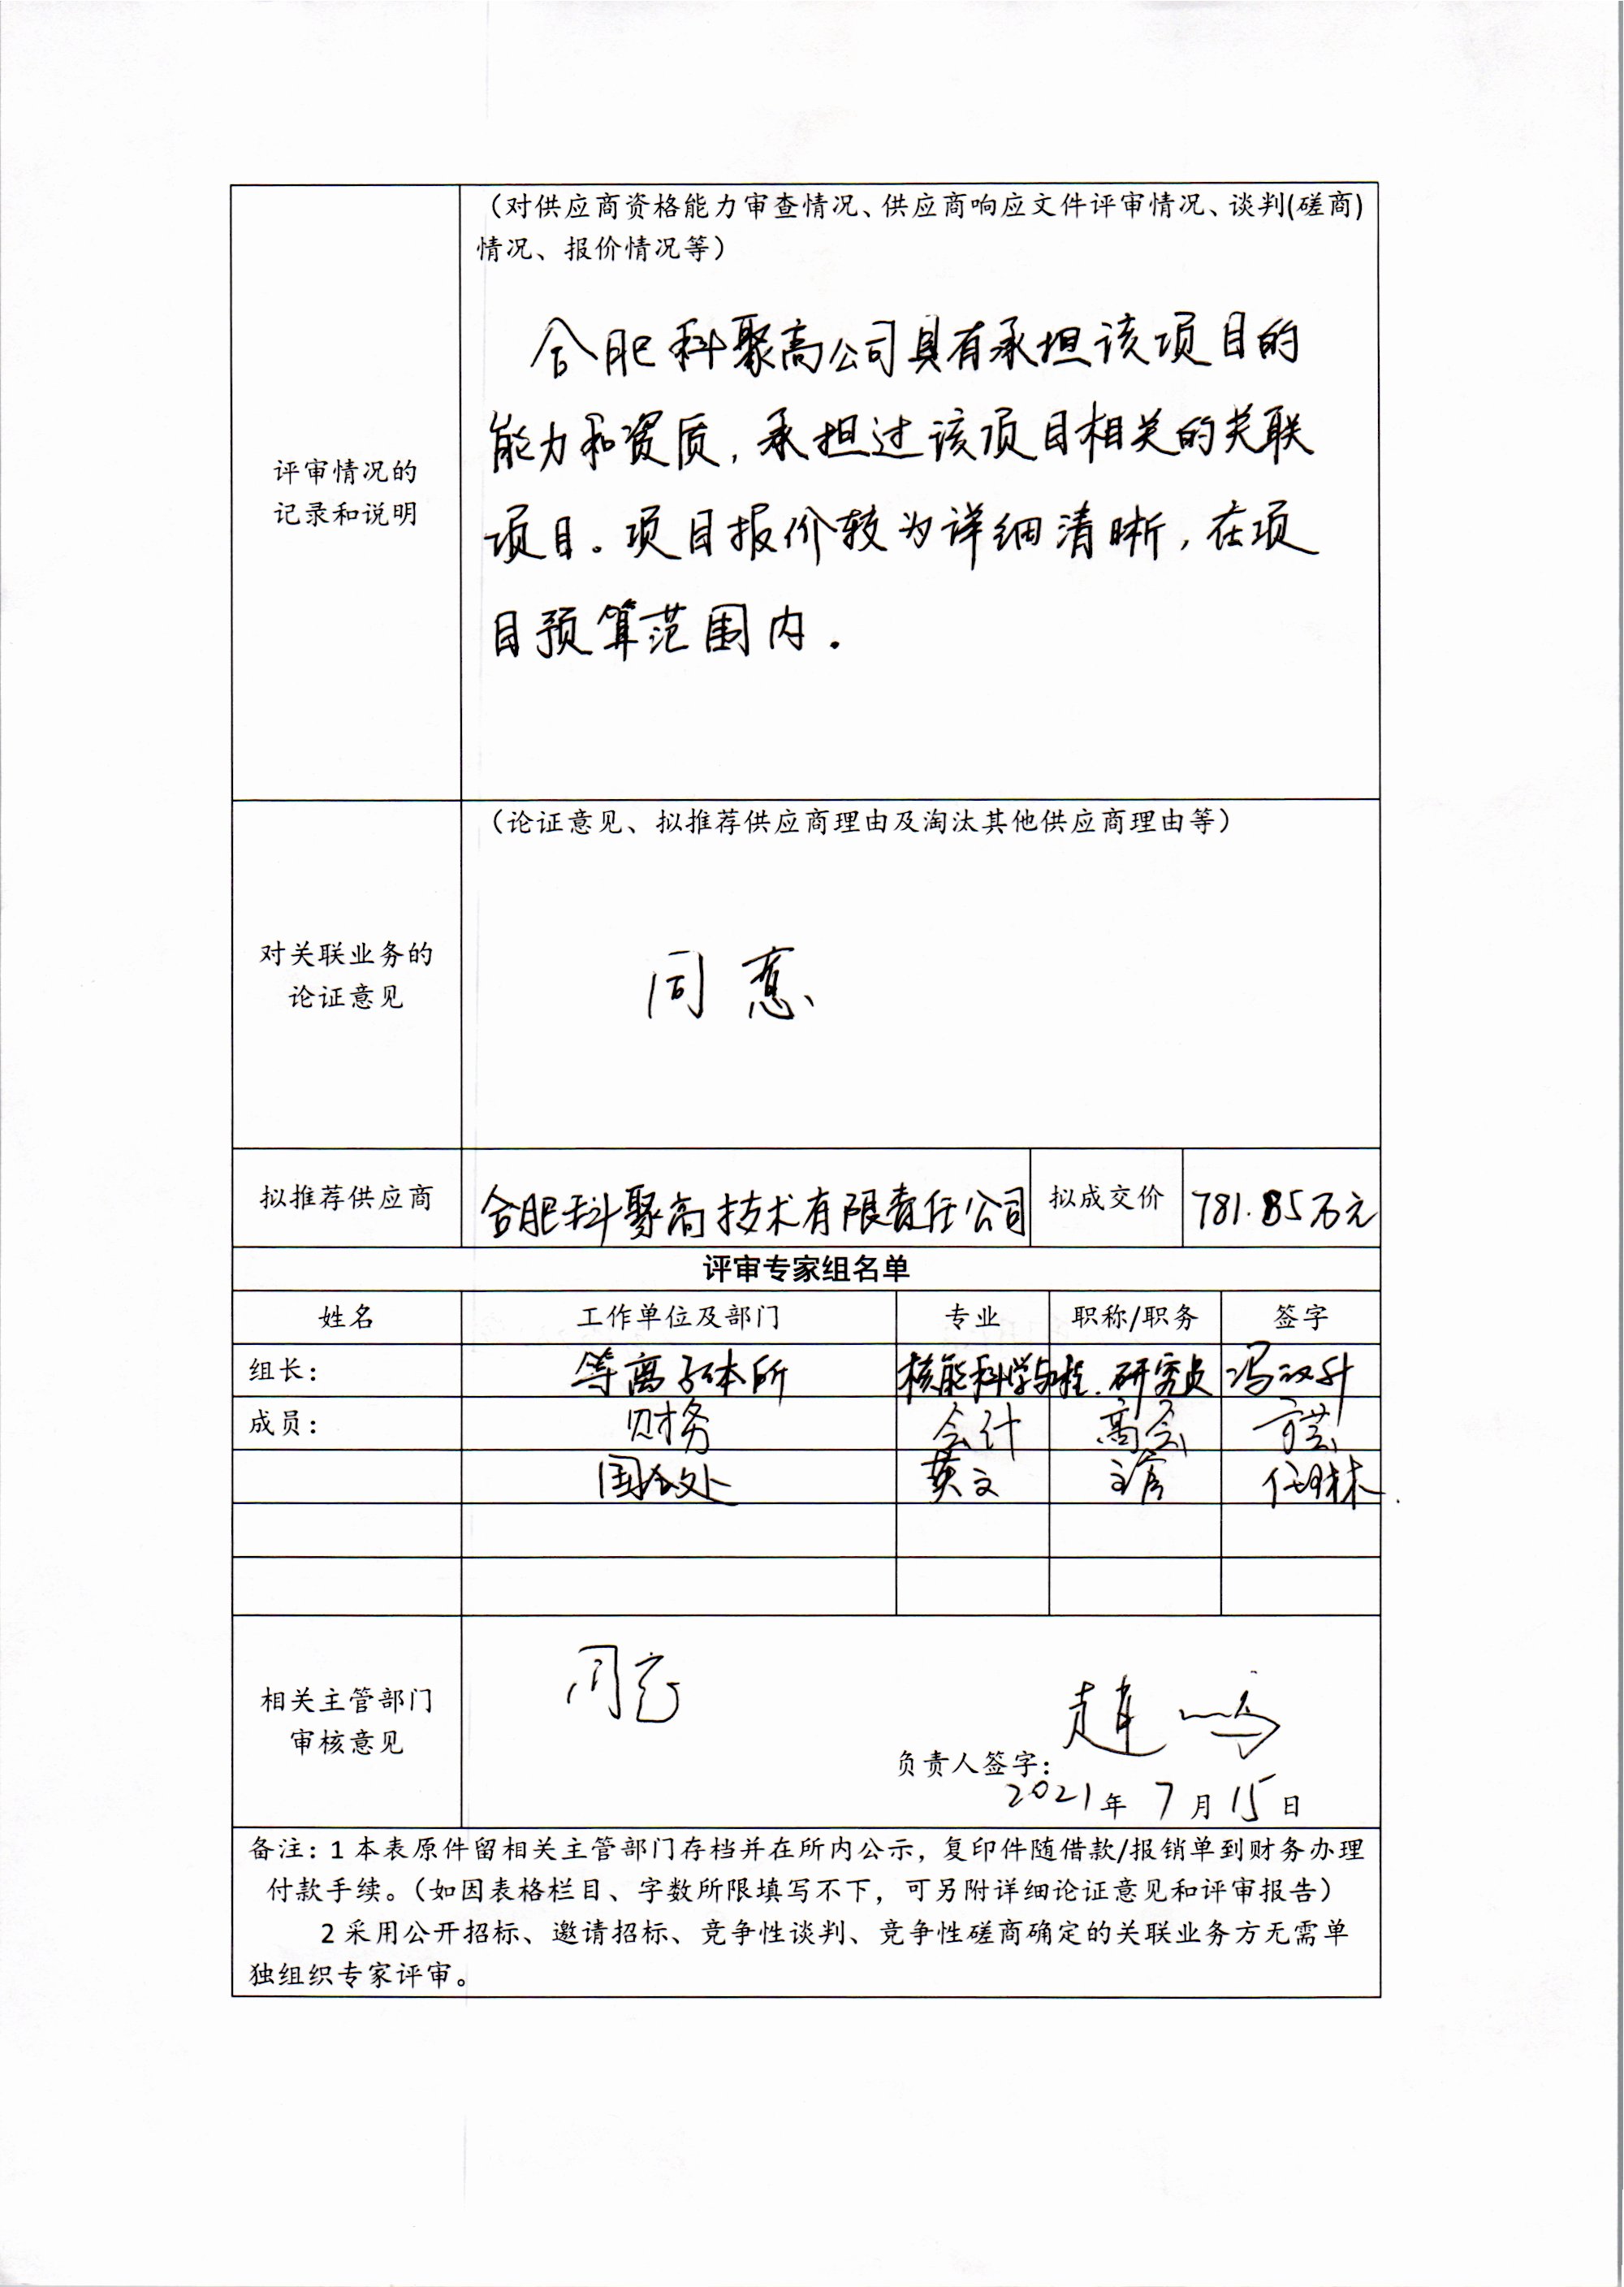 （对供应商资格能力审查情况、供应商响应文件评审情况、谈判(磋商)
情况、报价情况等）
评审情况的
记录和说明
合肥科聚高公司具有承担该项目的
能力和资质，承担过该项目相关的关联
项目。项目报价较为详细清晰，在项
目预算范围内.
（论证意见、拟推荐供应商理由及淘汰其他供应商理由等）
对关联业务的
论证意见
同意
拟推荐供应商 合肥科聚高技术有限责任公司 拟成交价 781.85万元
评审专家组名单
姓名 工作单位及部门 专业 职称/职务 签字
组长： 等离子体所 核能科学与工程 研究员 冯汉升
成员： 财务 会计 高会 方芸
国合处 英文 主管
相关主管部门
审核意见
同意
负责人签字：
2021年 7月 15日
备注：1 本表原件留相关主管部门存档并在所内公示，复印件随借款/报销单到财务办理
付款手续。（如因表格栏目、字数所限填写不下，可另附详细论证意见和评审报告）
2 采用公开招标、邀请招标、竞争性谈判、竞争性磋商确定的关联业务方无需单
独组织专家评审。